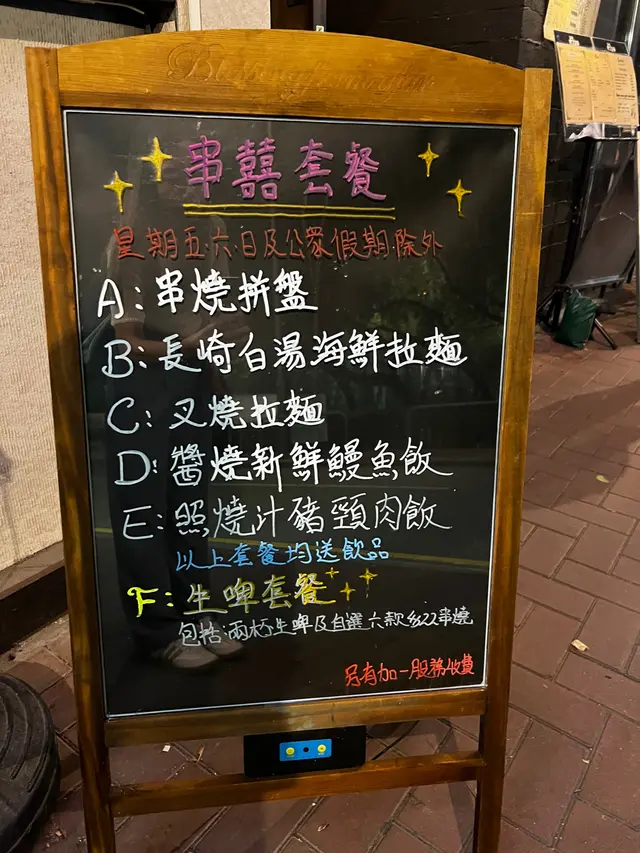 串囍套餐
星期五.六.日及公眾假期除外
A:串燒拼盤
B:長崎白湯海鮮拉麵
C:叉燒拉麵
D:醬燒新鮮鰻魚飯
E:照燒汁豬頸肉飯
以上套餐均送飲品
F:生啤套餐
包括:兩杯生啤及自選六款 串燒
另有加一服務收費